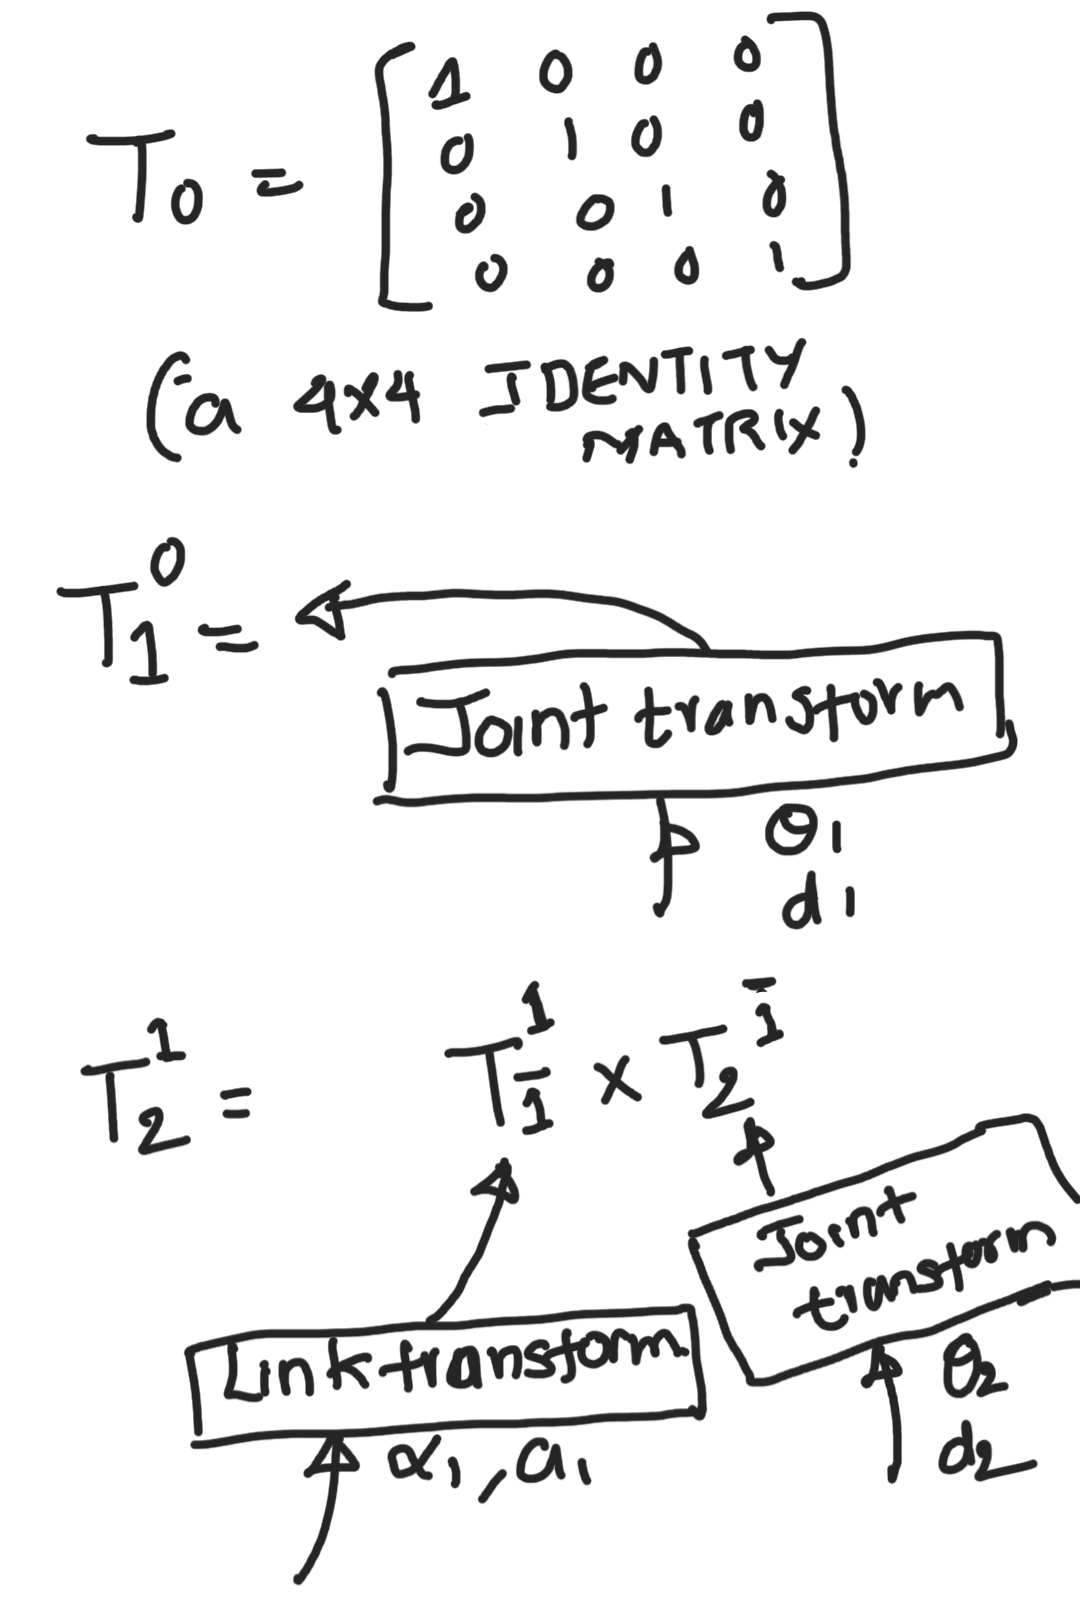 T₀ = [1 0 0 0
0 1 0 0
0 0 1 0
0 0 0 1]
(a 4x4 IDENTITY
MATRIX)
T₁⁰ =
Joint transform
θ₁
d₁
T₂¹ = T_1̄¹ x T₂^1̄
Joint
transform
Link transform
θ₂
α₁, a₁
d₂